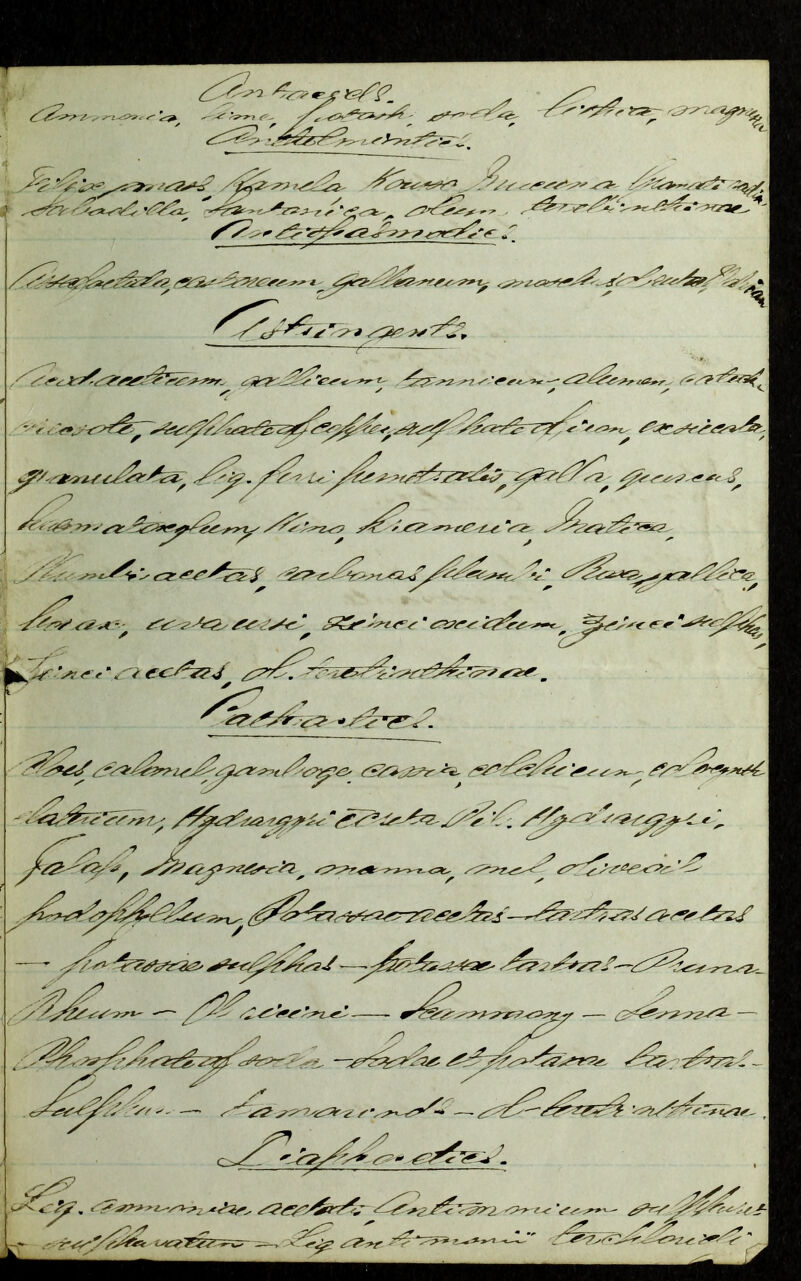 Antacids.
Ammonia, lime, potash, soda, lithia, magnesia
Anthelmintics.
Filix mass, Kamela Kousso Mucuna Granati radix
Sabadilla, Santonica, oleum terebinthinae
Antispasmodics.
Assafoetida, castoreum, galbanum, moschus, ol rutae, Valerian
Astringents.
Acid aceticum, gallicum, tannicum, alumen, catechu
creosote, sulphate of copper, sulphate of iron, exsiccata,
granulata, liq. ferri pernitratis, galla, quercus,
haematoxylum, Kino, krameria, Matica,
Plumbi acetas, carbonas plumbi, Rosa gallica,
borax, uva ursi, zinci oxidum, zinci sulphas,
Zinci acetas, ol. terebinthinae.
Cathartics.
Aloes, calomel, gamboge, cassia, colchicum, colocynth
elaterium, Hydrargyri c Creta Pil. Hydrargyri,
Jalap, Magnesia, manna, mel, olive oil
podophyllum, Potassae acetas - tartras acetas
- potassae sulphas - potassae tartras - Pruna -
Rheum - Ol ricini - Scammony - Senna -
Phosphate of soda - Sodae et potassae tartras. -
Sulphur - tamarinds - ol - terebinthinae.
Diaphoretics.
Liq. ammoniae acetatis Antimonium sulphuret
- sulphuratum - Liq antimonii terchloridi